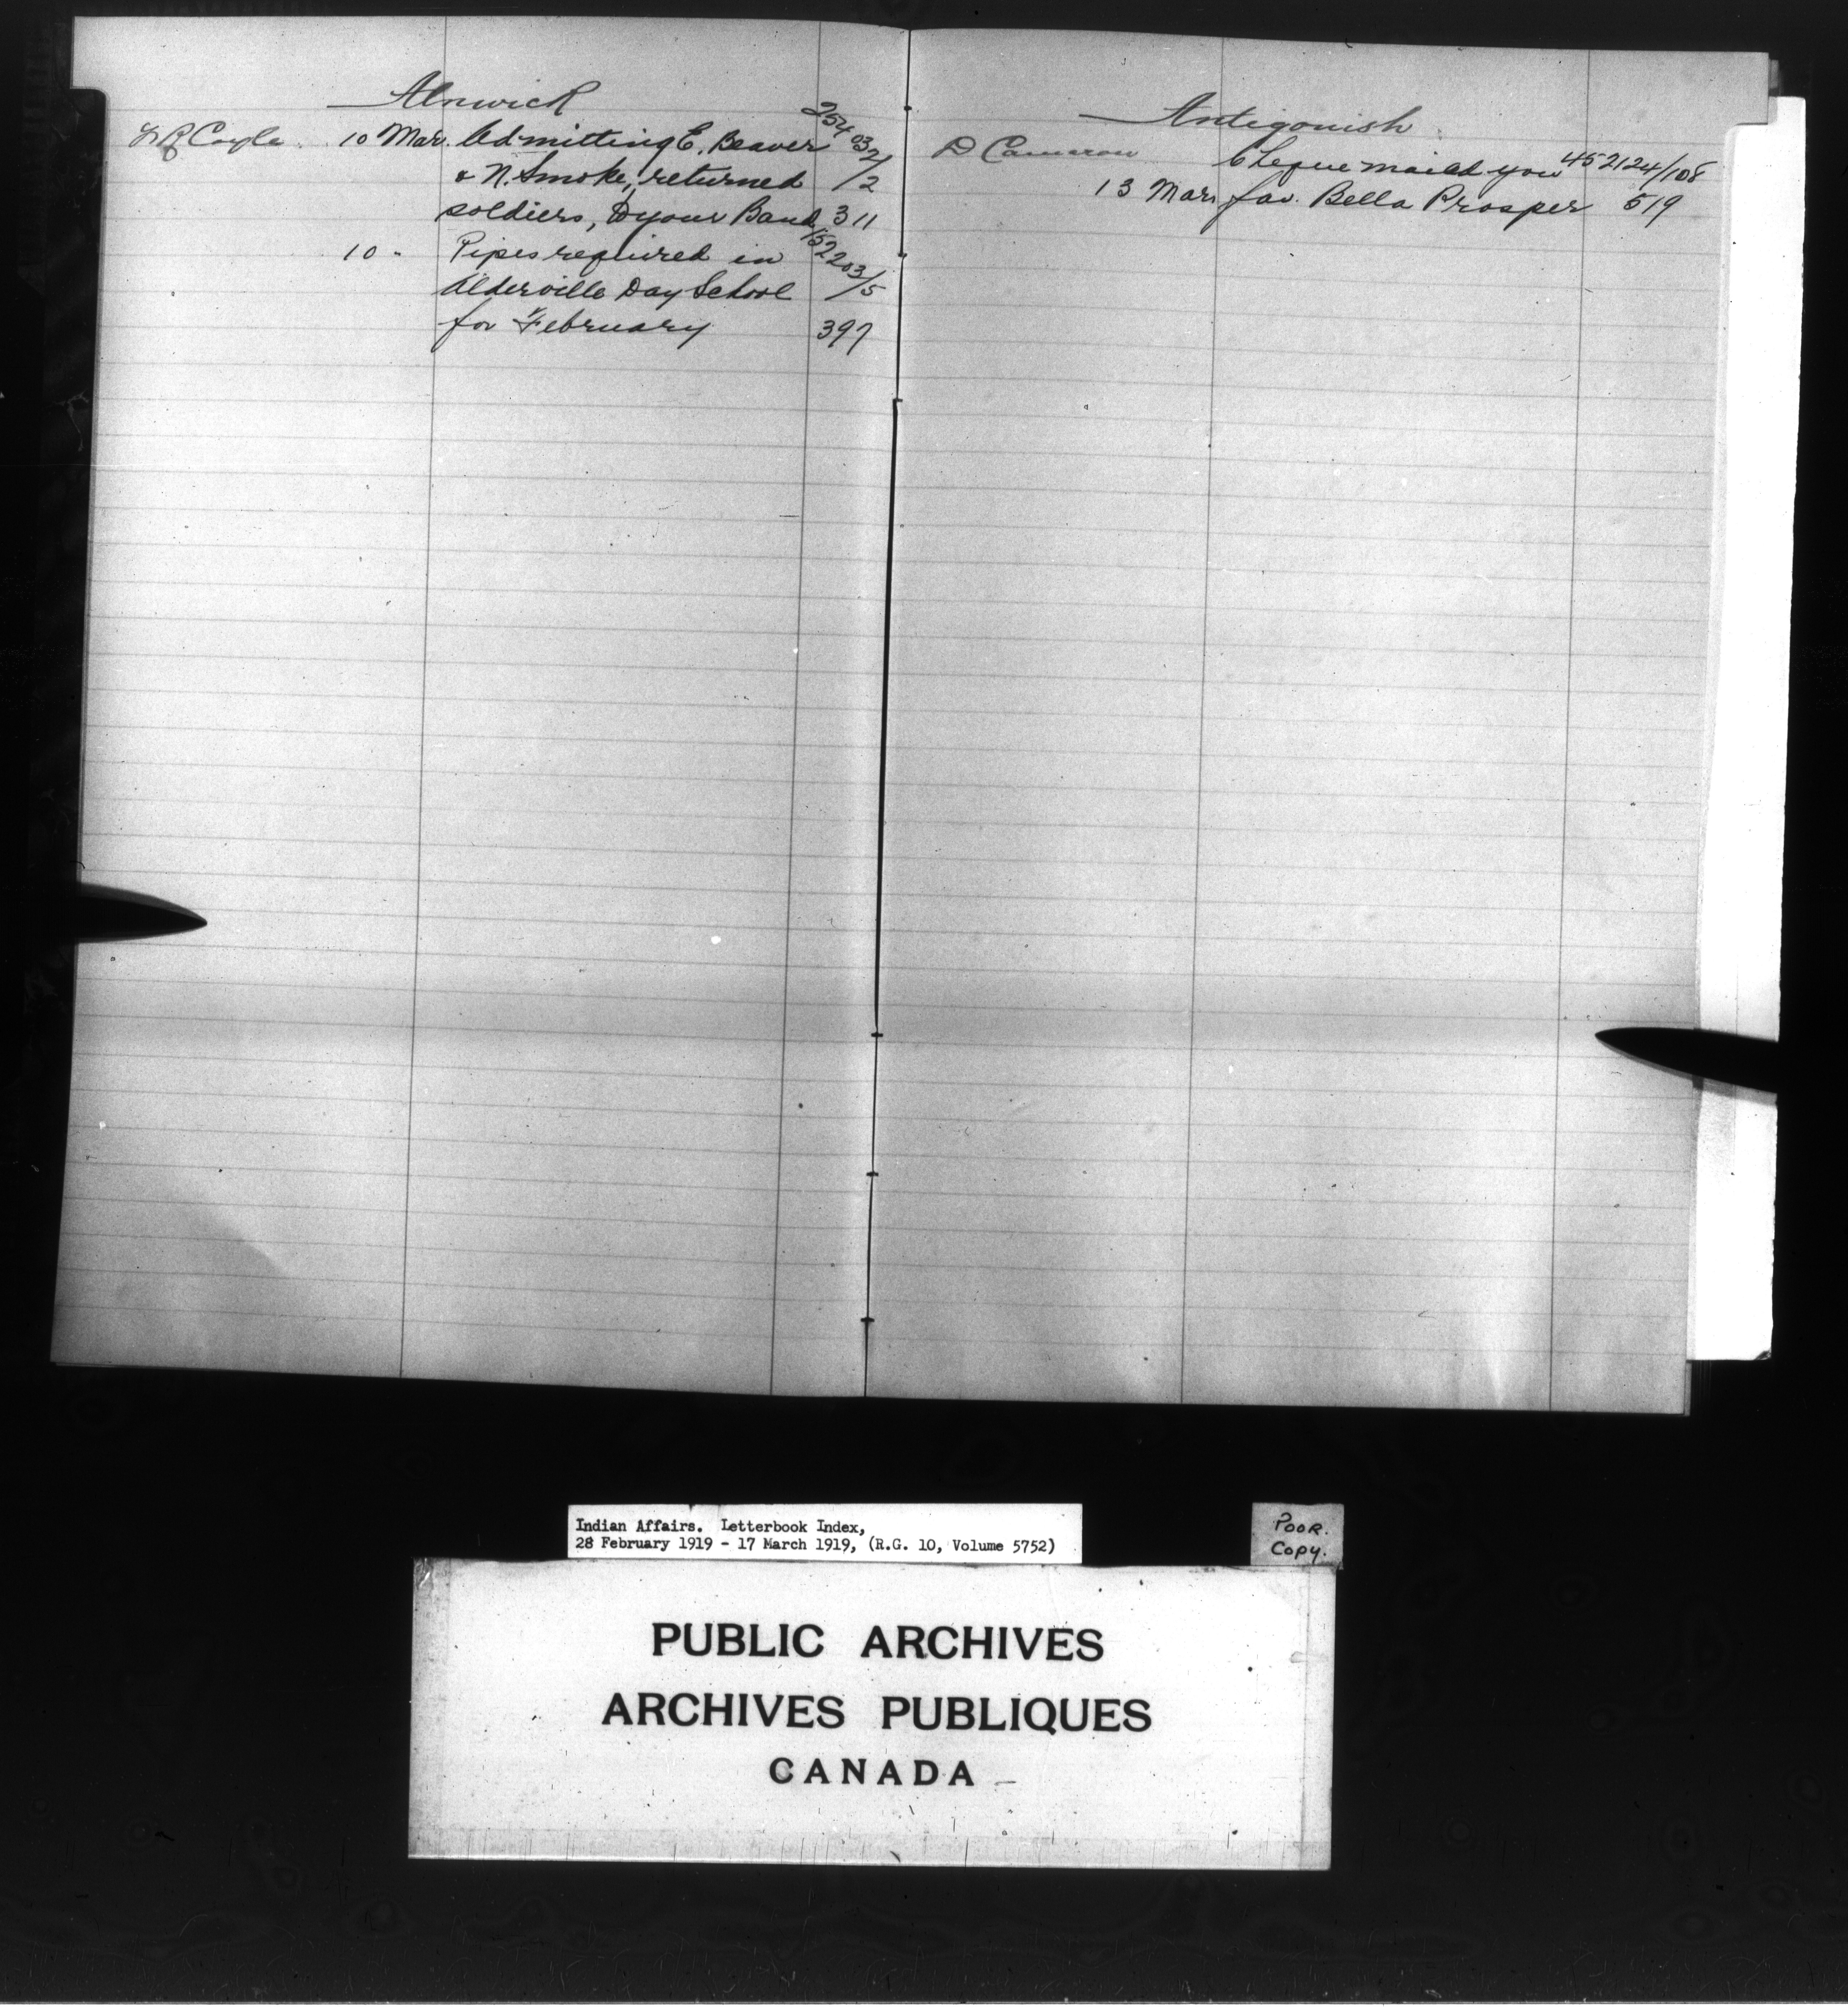 Alnwick
10 Mar. Admitting E. Beaver 254032/
& N. Smoke, returned /2
soldiers, to your Band 311
10 " Pipes required in 152203/
Alderville Day School /5
for February 397
Antigonish
D Cameron Cheque mailed you 452124/108
13 Mar. fav. Bella Prosper 519
Indian Affairs. Letterbook Index,
28 February 1919 - 17 March 1919, (R.G. 10, Volume 5752)
POOR.
COPY.
PUBLIC ARCHIVES
ARCHIVES PUBLIQUES
CANADA